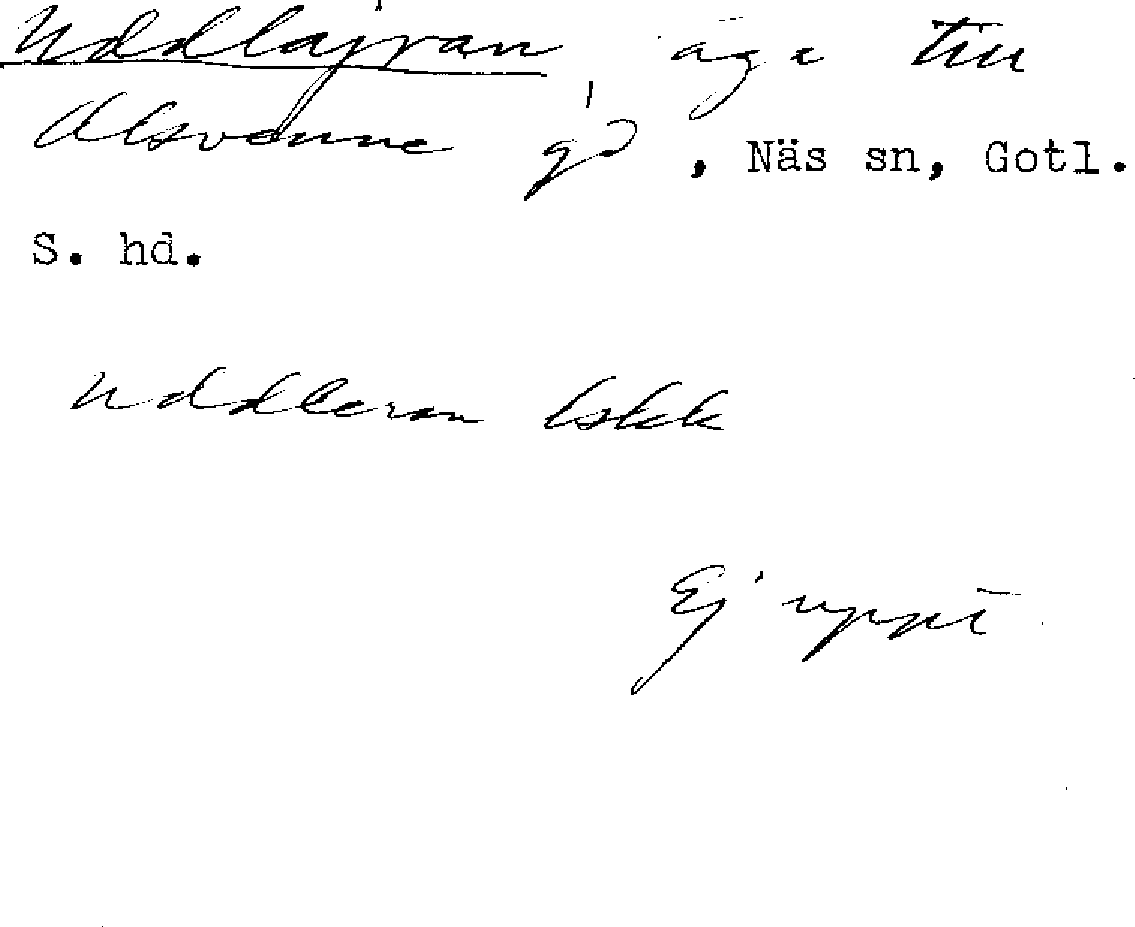 Uddlajran, äga till
Alsvenne gd, Näs sn, Gotl.
S. hd.
Uddleran lskk
Ej uppt